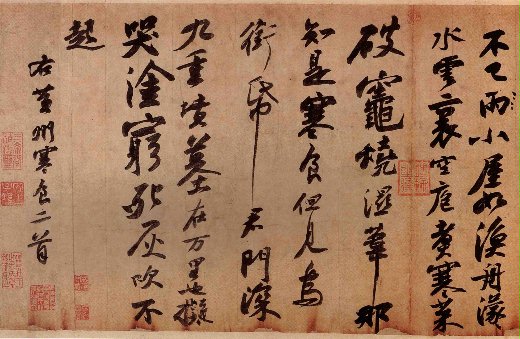 不已雨小屋如漁舟濛々
水雲裏空庖煮寒菜
破竈燒濕葦那
知是寒食但見烏
銜帋君門深
九重墳墓在万里也擬
哭塗窮死灰吹不
起
右黃州寒食二首